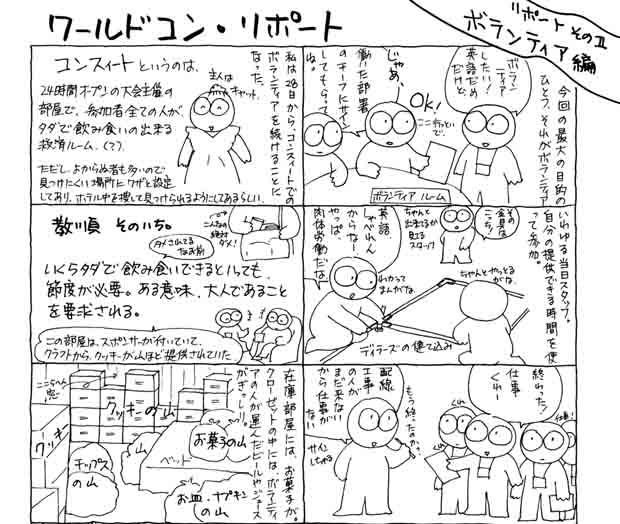 ワールドコン・リポート
リポート その2
ボランティア編
今回の最大の目的の
ひとつ、それがボランティア
ボランティア
したい!
英語だめ
だけど。
OK!
ここ行っといで。
じゃあ、
働いた部署
のチーフにサイン
してもらって
ね。
ボランティア ルーム
いわゆる当日スタッフ。
自分の提供できる時間を使
って参加。
その
金具は
こっち。
ちゃんと
出来てるか
見てる
スタッフ
英語
しゃべれん
からなー
やっぱ、
肉体労働だな。
わかって
まんがな。
ちゃんとやっとるがな。
ディーラーズの建て込み
終わった!
仕事
くれー
くれ
仕事!
もう終ったのか?
配線
工事
の人が
まだ来ない
から仕事が
ない
サイン
しちゃる
私は28日から、コンスィートでの
ボランティアを続けることに
なった。
コンスィートというのは、
主人は
キャット。
24時間オープンの大会主催の
部屋で、参加者全ての人が、
タダで飲み食いの出来る
救済ルーム。(??)
ただし、よからぬ者も多いので
見つけにくい場所にワザと設定
してあり、ホテル中を捜して見つけられるようにしてあるらしい。
教訓 その一。
こんなの
絶対
ダメ!
いくらタダで飲み食いできるといっても
節度が必要。ある意味、大人であること
を要求される。
この部屋は、スポンサーが付いていて、
クラフトから、クッキーが山ほど提供されていた
在庫部屋には、お菓子が。
クローゼットの中には、ボランティ
アの人が運んだビールやジュース
がぎっしり。
クッキーの山
クッキー
お菓子の山
ベッド
チップス
の山
お皿・ナプキン
の山